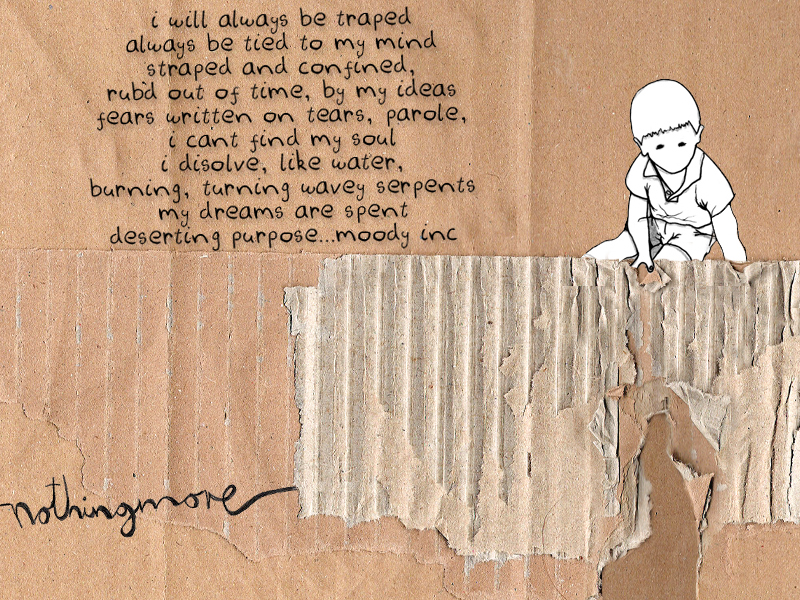 i will always be traped
always be tied to my mind
straped and confined,
rub'd out of time, by my ideas
fears written on tears, parole,
i cant find my soul
i disolve, like water,
burning, turning wavey serpents
my dreams are spent
deserting purpose...moody inc
nothingmore